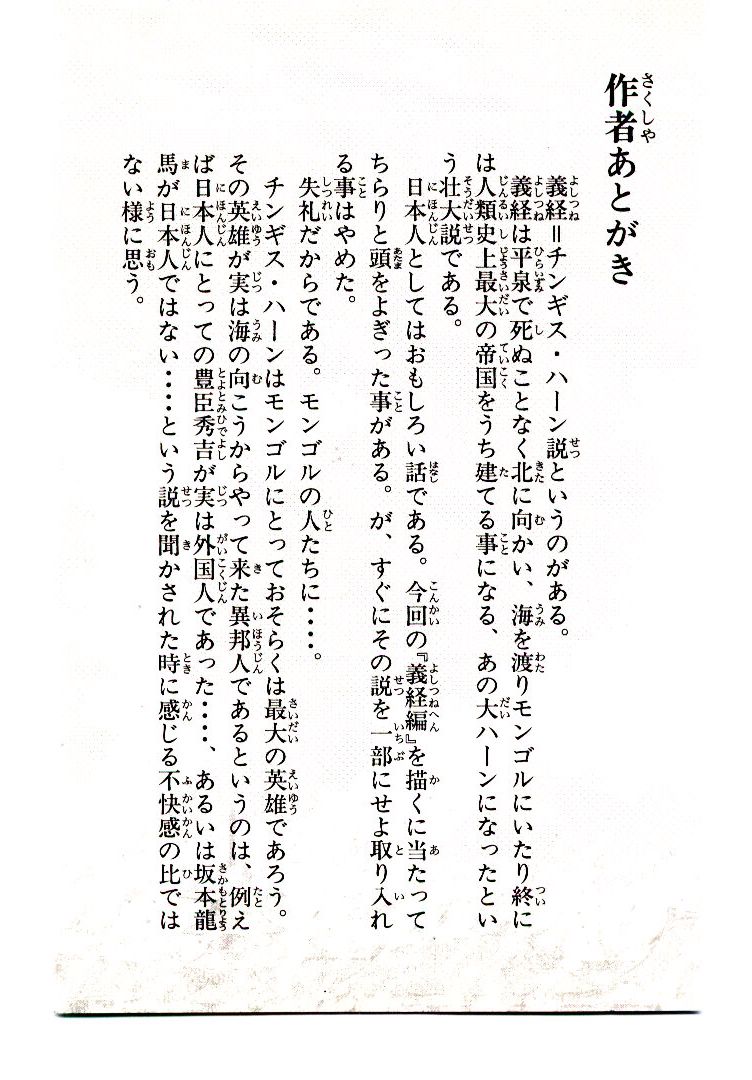 作者あとがき
義経＝チンギス・ハーン説というのがある。
義経は平泉で死ぬことなく北に向かい、海を渡りモンゴルにいたり終に
は人類史上最大の帝国をうち建てる事になる、あの大ハーンになったとい
う壮大説である。
日本人としてはおもしろい話である。今回の『義経編』を描くに当たって
ちらりと頭をよぎった事がある。が、すぐにその説を一部にせよ取り入れ
る事はやめた。
失礼だからである。モンゴルの人たちに・・・・。
チンギス・ハーンはモンゴルにとっておそらくは最大の英雄であろう。
その英雄が実は海の向こうからやって来た異邦人であるというのは、例え
ば日本人にとっての豊臣秀吉が実は外国人であった・・・・、あるいは坂本龍
馬が日本人ではない・・・・という説を聞かされた時に感じる不快感の比では
ない様に思う。